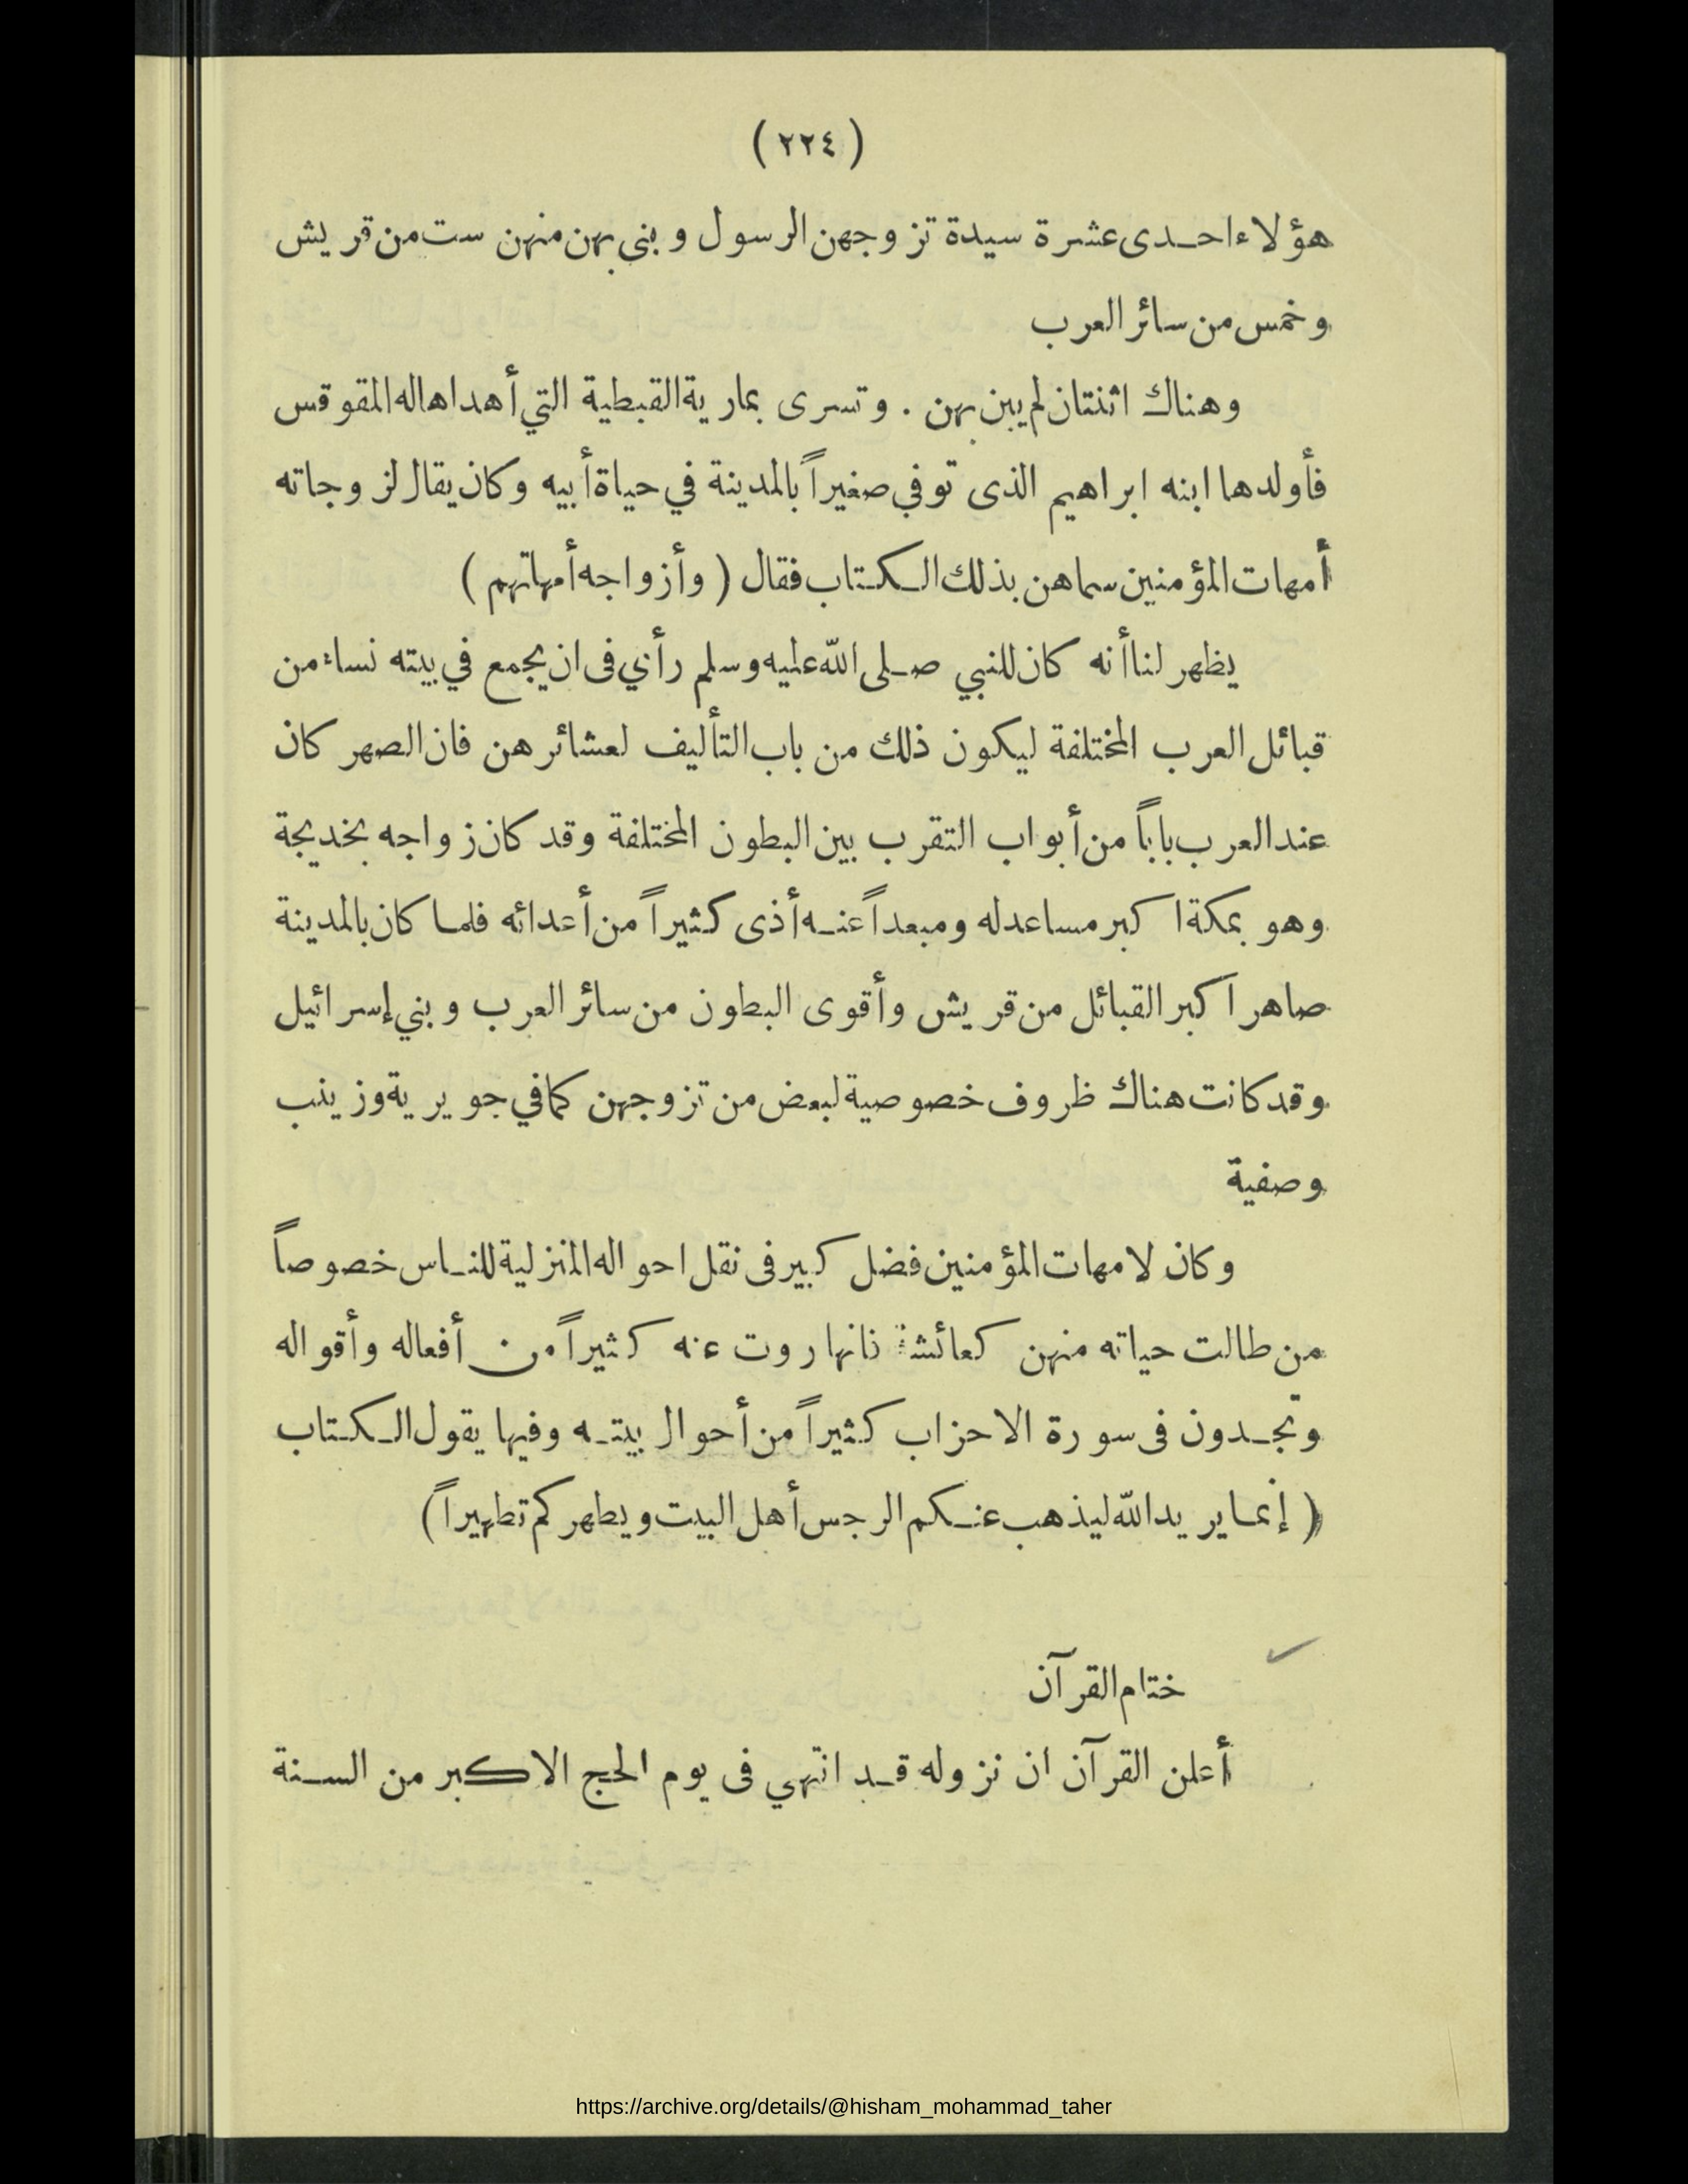 ( ٢٢٤ )
هؤلاء احدى عشرة سيدة تزوجهن الرسول وبني بهن منهن ست من قريش
وخمس من سائر العرب
وهناك اثنتان لم يبن بهن . وتسرى بمارية القبطية التي أهداها له المقوقس
فأولدها ابنه ابراهيم الذى توفي صغيراً بالمدينة في حياة أبيه وكان يقال لزوجاته
أمهات المؤمنين سماهن بذلك الكتاب فقال ( وأزواجه أمهاتهم )
يظهر لنا أنه كان للنبي صلى الله عليه وسلم رأي فى ان يجمع في بيته نساء من
قبائل العرب المختلفة ليكون ذلك من باب التأليف لعشائرهن فان الصهر كان
عند العرب باباً من أبواب التقرب بين البطون المختلفة وقد كان زواجه بخديجة
وهو بمكة اكبر مساعد له ومبعداً عنه أذى كثيراً من أعدائه فلما كان بالمدينة
صاهر اكبر القبائل من قريش وأقوى البطون من سائر العرب وبني إسرائيل
وقد كانت هناك ظروف خصوصية لبعض من تزوجهن كما في جويرية وزينب
وصفية
وكان لامهات المؤمنين فضل كبير فى نقل احواله المنزلية للناس خصوصاً
من طالت حياته منهن كعائشة فانها روت عنه كثيراً من أفعاله وأقواله
وتجدون فى سورة الاحزاب كثيراً من أحوال بيته وفيها يقول الكتاب
( إنما يريد الله ليذهب عنكم الرجس أهل البيت ويطهركم تطهيراً )
ختام القرآن
أعلن القرآن ان نزوله قد انتهي فى يوم الحج الاكبر من السنة
https://archive.org/details/@hisham_mohammad_taher